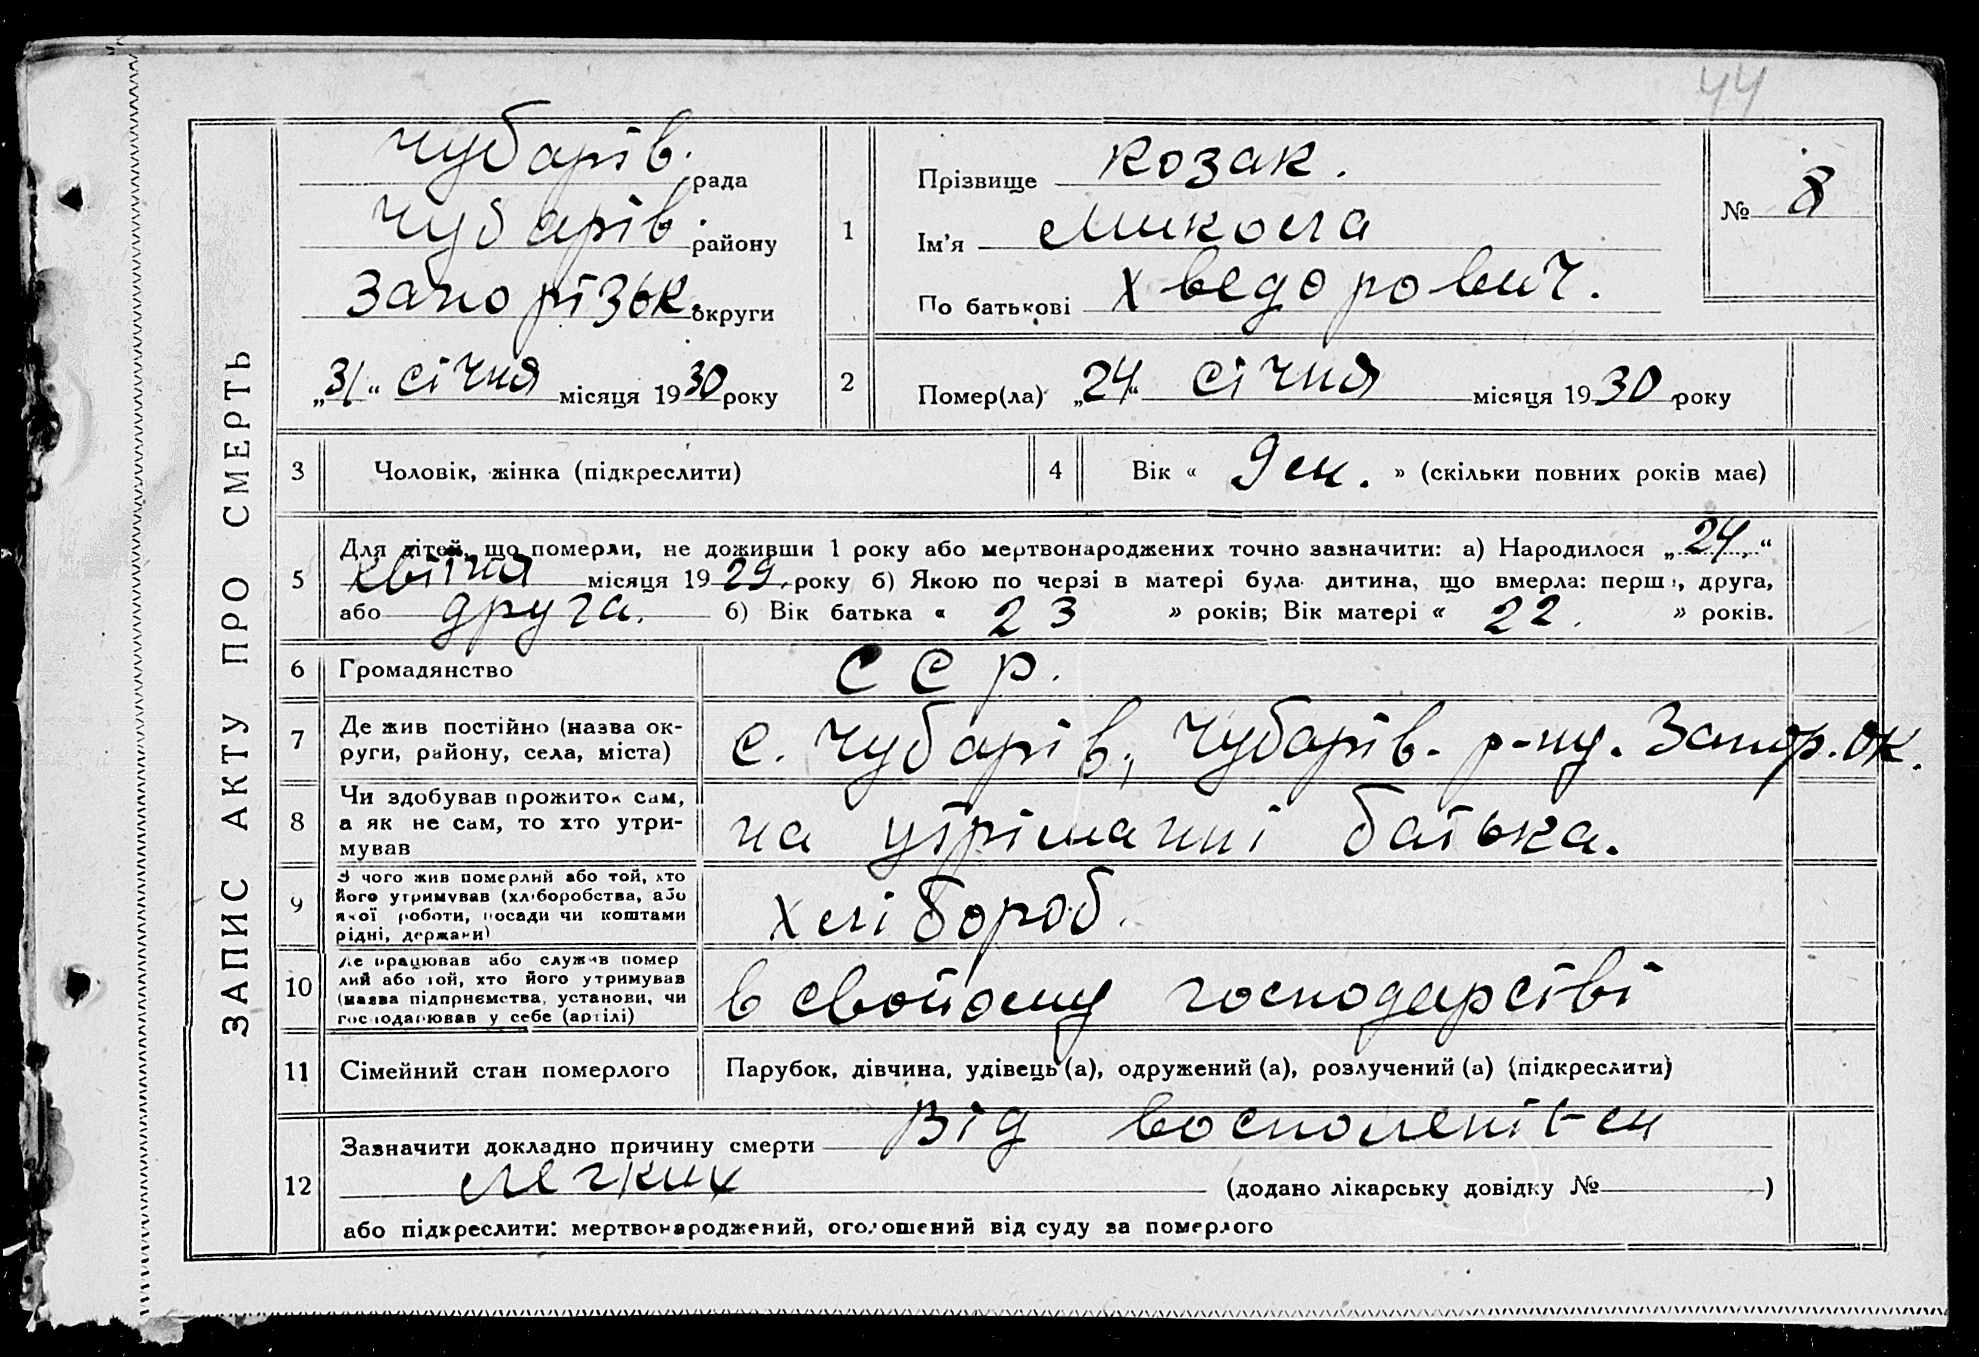 44
ЗАПИС АКТУ ПРО СМЕРТЬ
Чубарів. рада
Чубарів. району
Запорізьк. округи
„31“ січня місяця 1930 року
1
Прізвище Козак.
Ім'я Микола
По батькові Хведорович.
№ 8
2
Помер(ла) „24“ січня місяця 1930 року
3 Чоловік, жінка (підкреслити)
4 Вік « 9 м. » (скільки повних років має)
5
Для дітей, що померли, не доживши 1 року або мертвонароджених точно зазначити: а) Народилося „24“
квітня місяця 1929 року б) Якою по черзі в матері була дитина, що вмерла: перша, друга,
або друга. б) Вік батька « 23 » років; Вік матері « 22. » років.
6 Громадянство ССР.
7 Де жив постійно (назва ок-
руги, району, села, міста)
с. Чубарів, Чубарів. р-ну. Запор. ок.
8 Чи здобував прожиток сам,
а як не сам, то хто утри-
мував
на утріманні батька.
9 З чого жив померлий або той, хто
його утримував (хліборобства, або
якої роботи, посади чи коштами
рідні, держави)
хлібороб.
10 Де працював або служив помер
лий або той, хто його утримував
(назва підприємства, установи, чи
господарював у себе (артілі)
в свойому господарстві
11 Сімейний стан померлого
Парубок, дівчина, удівець (а), одружений (а), розлучений (а) (підкреслити)
12
Зазначити докладно причину смерти Від
легких (додано лікарську довідку № )
або підкреслити: мертвонароджений, оголошений від суду за померлого